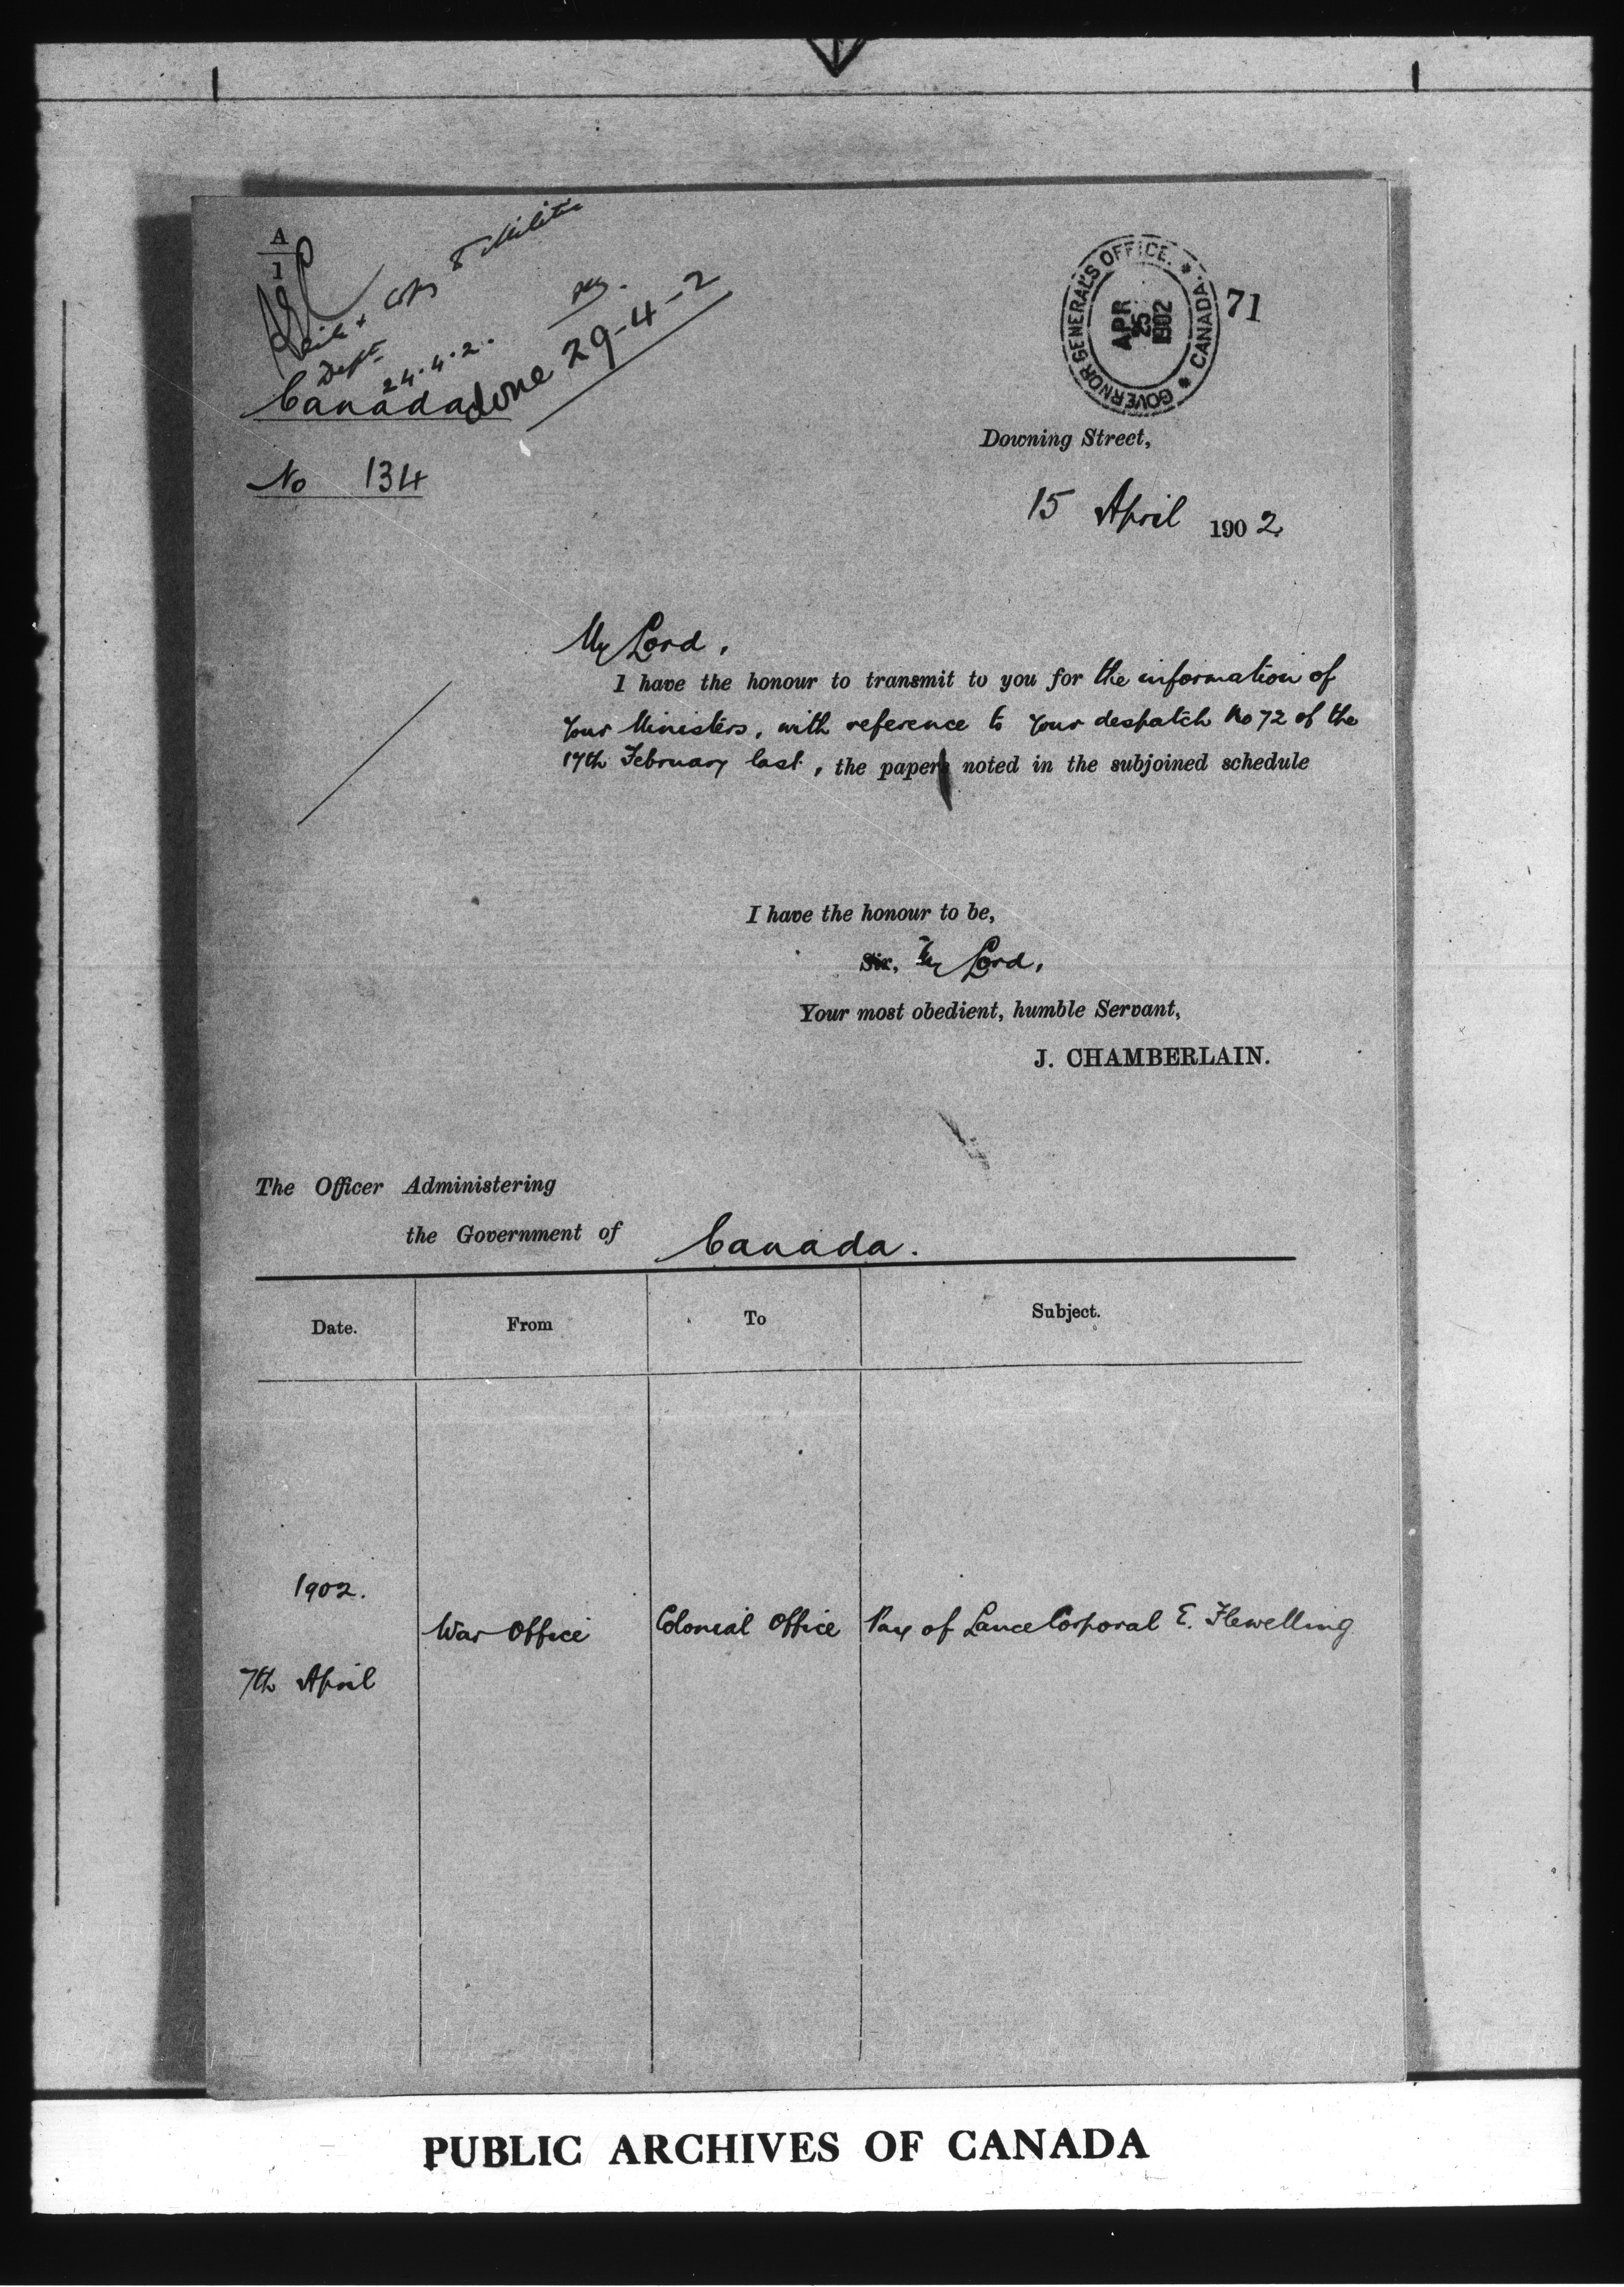 A
1
Dept
24.4.2.
done 29-4-2
GOVERNOR GENERAL'S OFFICE. * CANADA. *
APR
25
1902
71
Canada
No 134
Downing Street,
15 April 1902
My Lord,
I have the honour to transmit to you for the information of
Your Ministers, with reference to Your despatch No 72 of the
17th February last, the paper noted in the subjoined schedule
I have the honour to be,
Sir, My Lord,
Your most obedient, humble Servant,
J. CHAMBERLAIN.
The Officer Administering
the Government of Canada.
Date. From To Subject.
1902.
War Office Colonial Office Pay of Lance Corporal E. Flewelling
7th April
PUBLIC ARCHIVES OF CANADA